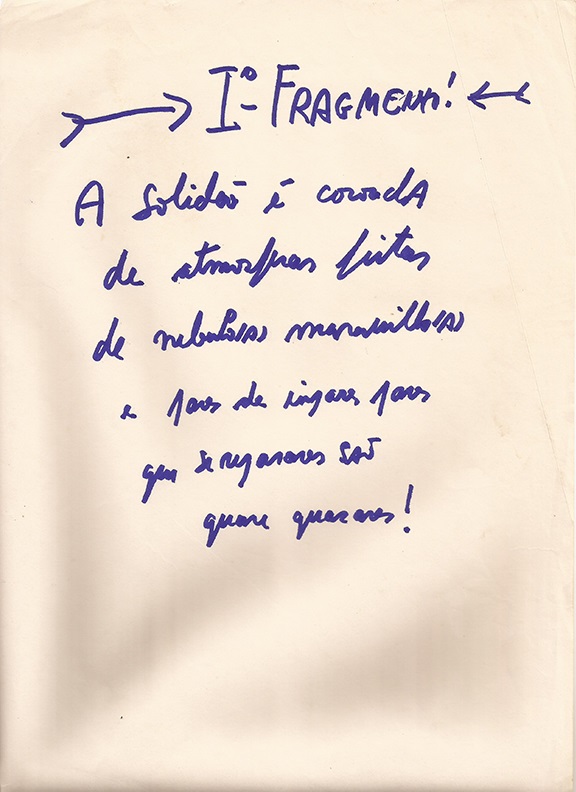 Iº- FRAGMENTO!
A solidão é coroada
de atmosferas feitas
de nebulosas maravilhosas
e pares de ímpares pares
que se reparares são
quase quasares!